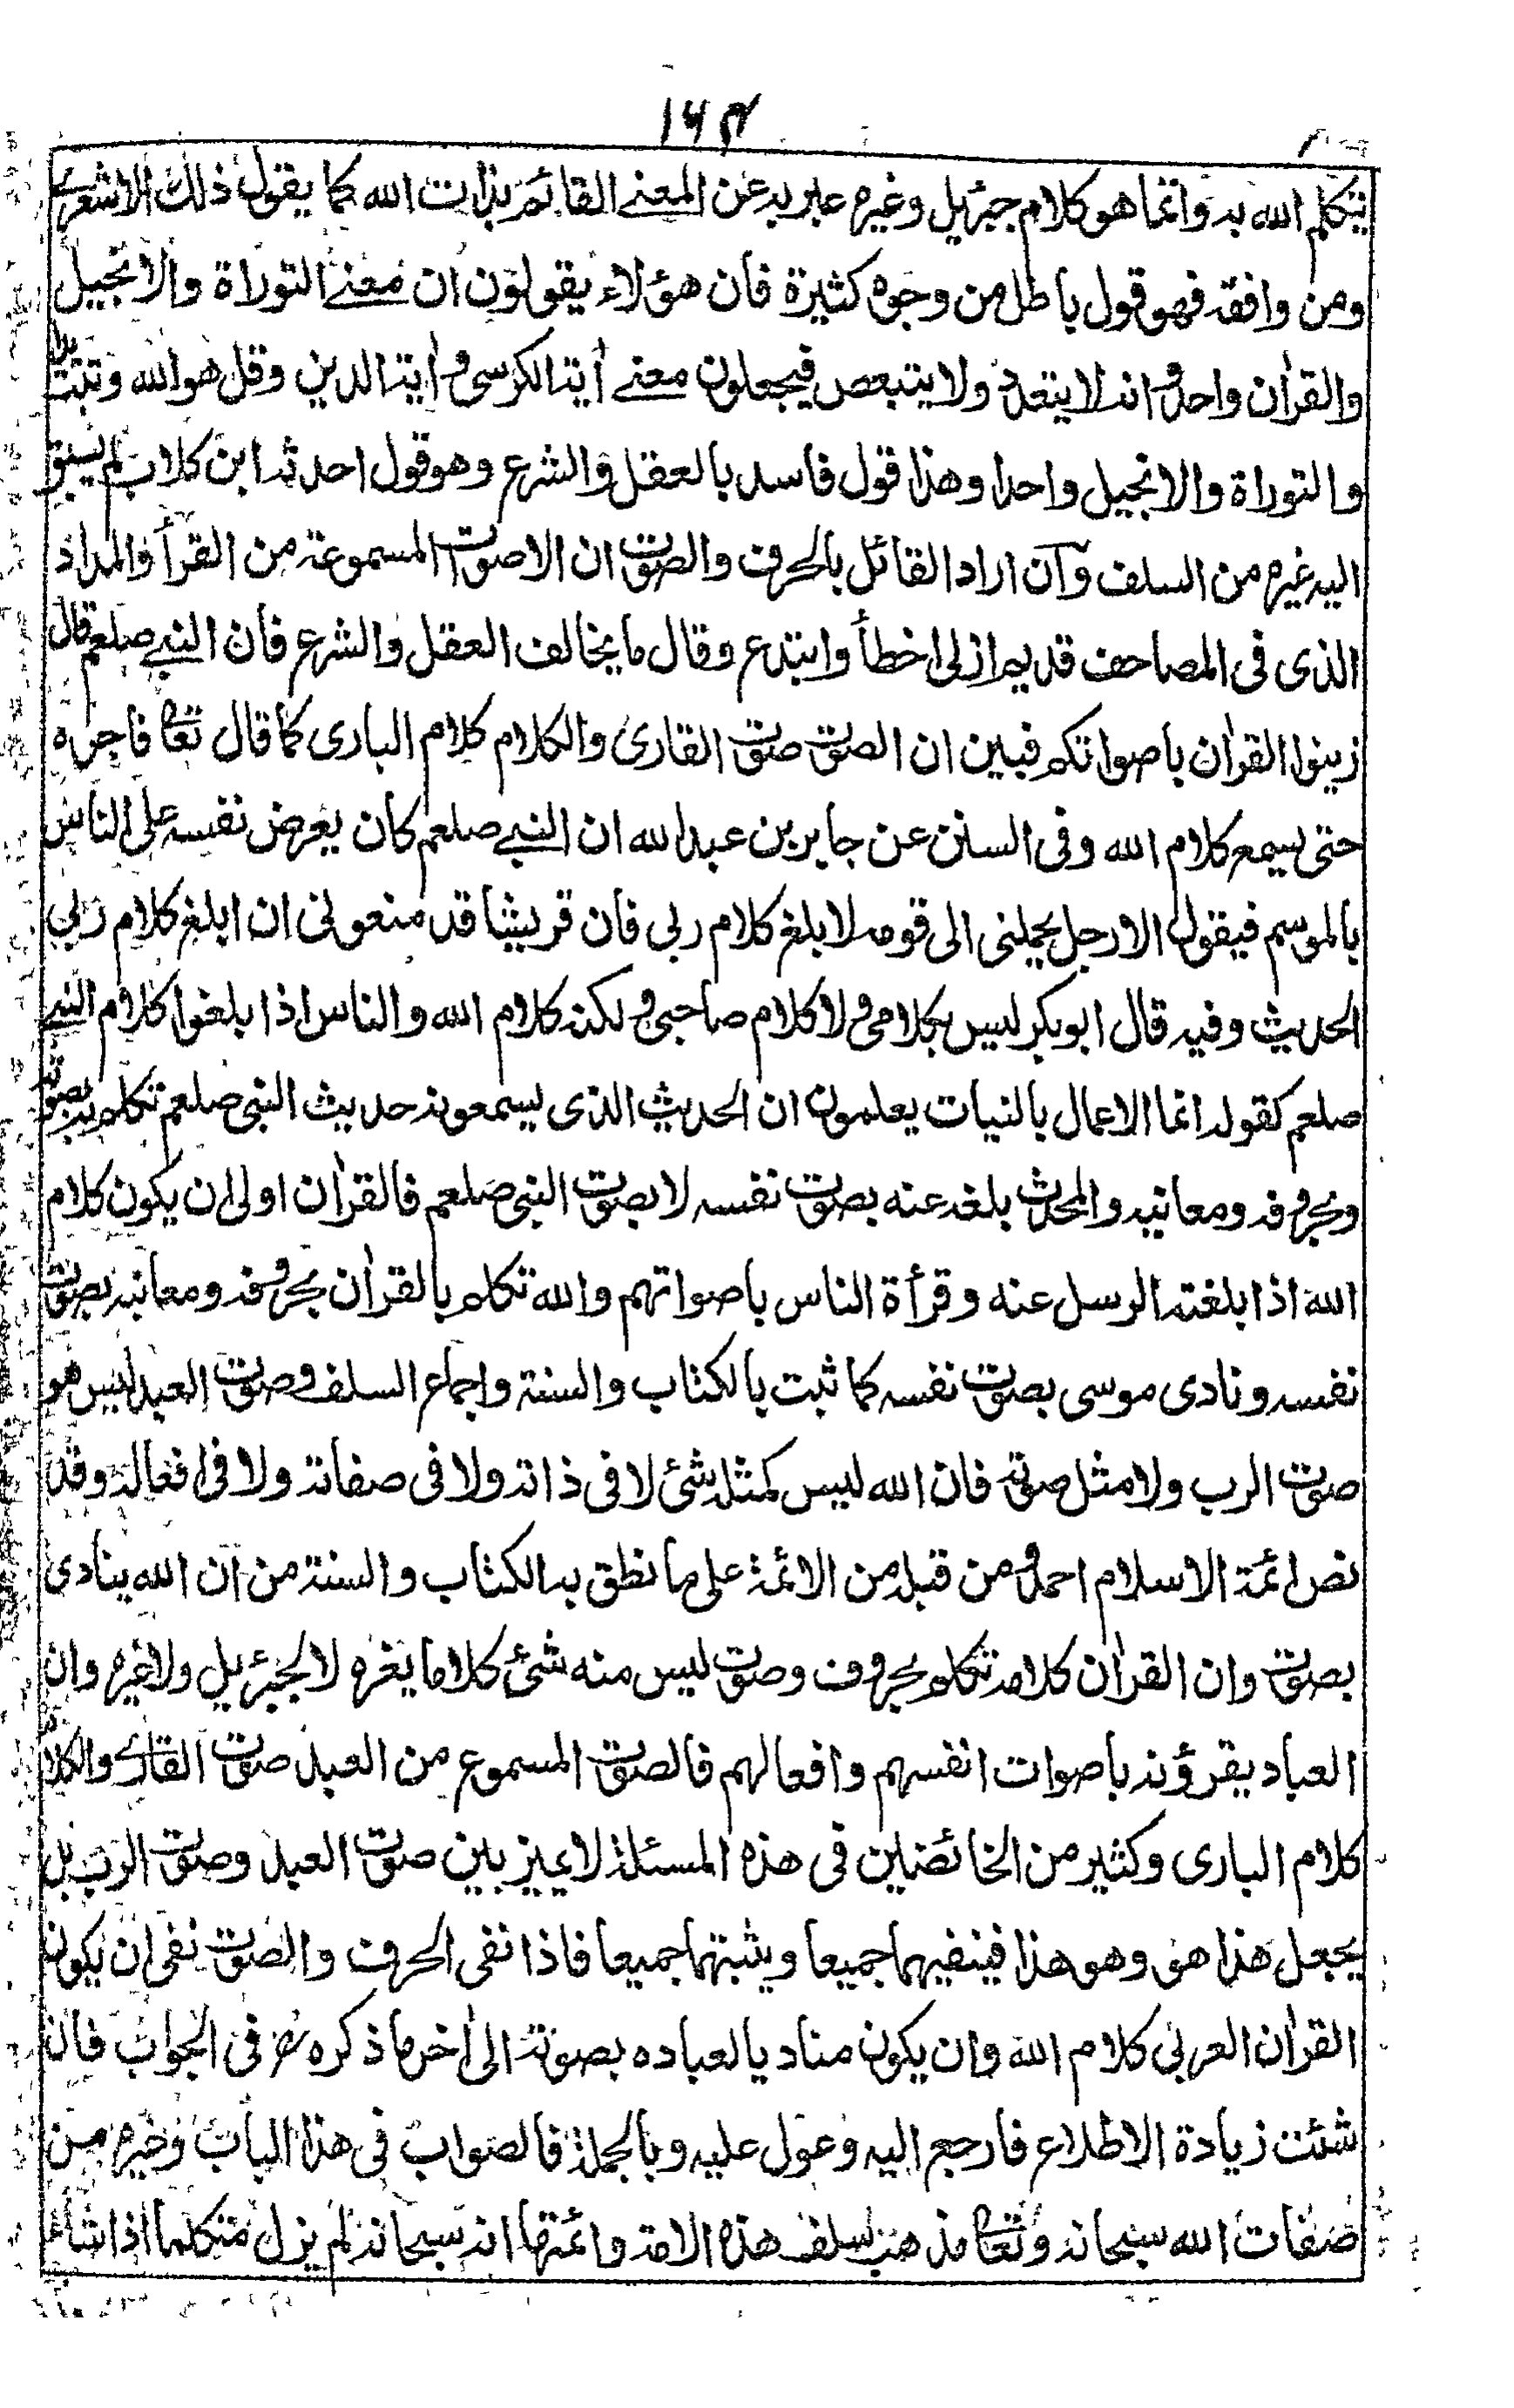 ١٦٤
يتكلم الله به وانما هو كلام جبرئيل وغيره عبر به عن المعنے القائم بذات الله كما يقول ذلك الاشعرى
ومن وافقه فهو قول باطل من وجوه كثيرة فان هؤلاء يقولون ان معنے التوراة والانجيل
والقرأن واحد وانه لا يتعدد ولا يتبعض فيجعلون معنے أية الكرسى وأية الدين وقل هو الله وتبت
والتوراة والانجيل واحدا وهذا قول فاسد بالعقل والشرع وهو قول احدثه ابن كلاب لم يسبق
اليه غيره من السلف وان اراد القائل بالحرف والصوت ان الاصوات المسموعة من القرأ والمداد
الذى فى المصاحف قديم ازلى اخطأ وابتدع وقال ما يخالف العقل والشرع فان النبے صلعم قال
زينوا القرأن باصواتكم فبين ان الصوت صوت القارئ والكلام كلام البارى كما قال تعا فاجره
حتى يسمع كلام الله وفى السنن عن جابر بن عبد الله ان النبے صلعم كان يعرض نفسه على الناس
بالموسم فيقول الا رجل يحملنى الى قومه لابلغ كلام ربى فان قريشا قد منعونى ان ابلغ كلام ربي
الحديث وفيه قال ابوبكر ليس بكلامى ولا كلام صاحبى ولكنه كلام الله والناس اذا بلغوا كلام النبے
صلعم كقوله انما الاعمال بالنيات يعلمون ان الحديث الذى يسمعونه حديث النبى صلعم تكلم به بصوته
وبحروفه ومعانيه والمحدث بلغه عنه بصوت نفسه لا بصوت النبى صلعم فالقرأن اولى ان يكون كلام
الله اذا بلغته الرسل عنه وقرأة الناس باصواتهم والله تكلم بالقرأن بحروفه ومعانيه بصوت
نفسه ونادى موسى بصوت نفسه كما ثبت بالكتاب والسنة واجماع السلف وصوت العبد ليس هو
صوت الرب ولا مثل صوته فان الله ليس كمثله شئ لا فى ذاته ولا فى صفاته ولا فى افعاله وقد
نص ائمة الاسلام احمد ومن قبله من الائمة على ما نطق به الكتاب والسنة من ان الله ينادى
بصوت وان القرأن كلامه تكلم بحروف وصوت ليس منه شئ كلاما يغره لا لجبرئيل ولا غيره وان
العباد يقرؤنه باصوات انفسهم وافعالهم فالصوت المسموع من العبد صوت القارى والكلام
كلام البارى وكثير من الخائضين فى هذه المسئلة لا يميز بين صوت العبد وصوت الرب بل
يجعل هذا هو وهو هذا فينفيهما جميعا ويثبتهما جميعا فاذا نفى الحرف والصوت نفى ان يكون
القرأن العربى كلام الله وان يكون مناديا لعباده بصوته الى أخر ما ذكره فى الجواب فان
شئت زيادة الاطلاع فارجع اليه وعول عليه وبالجملة فالصواب فى هذا الباب وغيره من
صفات الله سبحانه وتعا مذهب سلف هذه الامة وائمتها انه سبحانه لم يزل متكلما اذا شاء